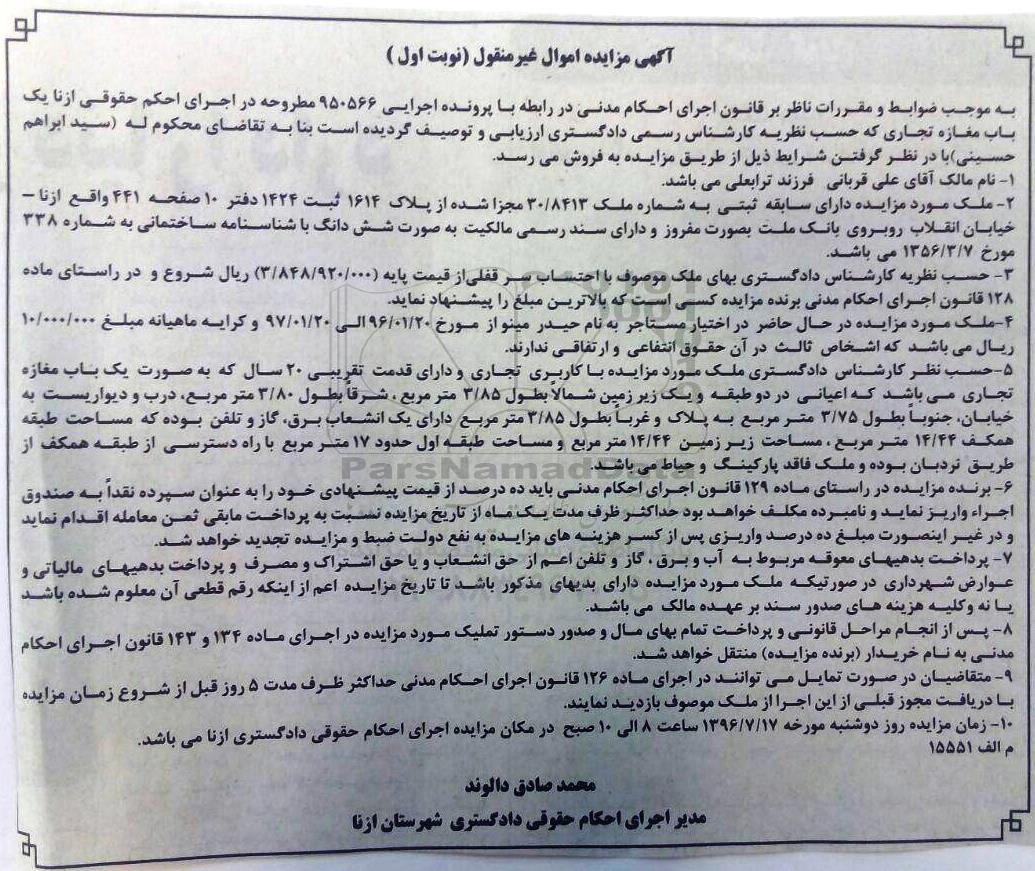 آگهی مزایده اموال غیرمنقول (نوبت اول )
به موجب ضوابط و مقررات ناظر بر قانون اجرای احکام مدنی در رابطه با پرونده اجرایی ۹۵۰۵۶۶ مطروحه در اجرای احکم حقوقی ازنا یک
باب مغازه تجاری که حسب نظریه کارشناس رسمی دادگستری ارزیابی و توصیف گردیده است بنا به تقاضای محکوم له (سید ابراهم
حسینی)با در نظر گرفتن شرایط ذیل از طریق مزایده به فروش می رسد.
۱- نام مالک آقای علی قربانی فرزند ترابعلی می باشد.
۲- ملک مورد مزایده دارای سابقه ثبتی به شماره ملک ۳۰/۸۴۱۳ مجزا شده از پلاک ۱۶۱۴ ثبت ۱۴۲۴ دفتر ۱۰ صفحه ۴۴۱ واقع ازنا –
خیابان انقلاب روبروی بانک ملت بصورت مفروز و دارای سند رسمی مالکیت به صورت شش دانگ با شناسنامه ساختمانی به شماره ۳۳۸
مورخ ۱۳۵۶/۳/۷ می باشد.
۳- حسب نظریه کارشناس دادگستری بهای ملک موصوف با احتساب سر قفلی از قیمت پایه (۳/۸۴۸/۹۲۰/۰۰۰) ریال شروع و در راستای ماده
۱۲۸ قانون اجرای احکام مدنی برنده مزایده کسی است که بالاترین مبلغ را پیشنهاد نماید.
۴-ملک مورد مزایده در حال حاضر در اختیار مستأجر به نام حیدر مینو از مورخ ۹۶/۰۱/۲۰ الی ۹۷/۰۱/۲۰ و کرایه ماهیانه مبلغ ۱۰/۰۰۰/۰۰۰
ریال می باشد که اشخاص ثالث در آن حقوق انتفاعی و ارتفاقی ندارند.
۵-حسب نظر کارشناس دادگستری ملک مورد مزایده با کاربری تجاری و دارای قدمت تقریبی ۲۰ سال که به صورت یک باب مغازه
تجاری می باشد که اعیانی در دو طبقه و یک زیر زمین شمالاً بطول ۳/۸۵ متر مربع ، شرقاً بطول ۳/۸۰ متر مربع، درب و دیواریست به
خیابان، جنوباً بطول ۳/۷۵ متر مربع به پلاک و غرباً بطول ۳/۸۵ متر مربع دارای یک انشعاب برق، گاز و تلفن بوده که مساحت طبقه
همکف ۱۴/۴۴ متر مربع ، مساحت زیر زمین ۱۴/۴۴ متر مربع و مساحت طبقه اول حدود ۱۷ متر مربع با راه دسترسی از طبقه همکف از
طریق نردبان بوده و ملک فاقد پارکینگ و حیاط می باشد.
ParsNamadData
۶- برنده مزایده در راستای ماده ۱۲۹ قانون اجرای احکام مدنی باید ده درصد از قیمت پیشنهادی خود را به عنوان سپرده نقداً به صندوق
اجراء واریز نماید و نامبرده مکلف خواهد بود حداکثر ظرف مدت یک ماه از تاریخ مزایده نسبت به پرداخت مابقی ثمن معامله اقدام نماید
و در غیر اینصورت مبلغ ده درصد واریزی پس از کسر هزینه های مزایده به نفع دولت ضبط و مزایده تجدید خواهد شد.
۷- پرداخت بدهیهای معوقه مربوط به آب و برق ، گاز و تلفن اعم از حق انشعاب و یا حق اشتراک و مصرف و پرداخت بدهیهای مالیاتی و
عوارض شهرداری در صورتیکه ملک مورد مزایده دارای بدیهای مذکور باشد تا تاریخ مزایده اعم از اینکه رقم قطعی آن معلوم شده باشد
یا نه وکلیه هزینه های صدور سند بر عهده مالک می باشد.
۸- پس از انجام مراحل قانونی و پرداخت تمام بهای مال و صدور دستور تملیک مورد مزایده در اجرای ماده ۱۳۴ و ۱۴۳ قانون اجرای احکام
مدنی به نام خریدار (برنده مزایده) منتقل خواهد شد.
۹- متقاضیان در صورت تمایل می توانند در اجرای ماده ۱۲۶ قانون اجرای احکام مدنی حداکثر ظرف مدت ۵ روز قبل از شروع زمان مزایده
با دریافت مجوز قبلی از این اجرا از ملک موصوف بازدید نمایند.
۱۰- زمان مزایده روز دوشنبه مورخه ۱۳۹۶/۷/۱۷ ساعت ۸ الی ۱۰ صبح در مکان مزایده اجرای احکام حقوقی دادگستری ازنا می باشد.
م الف ۱۵۵۵۱
محمد صادق دالوند
مدیر اجرای احکام حقوقی دادگستری شهرستان ازنا